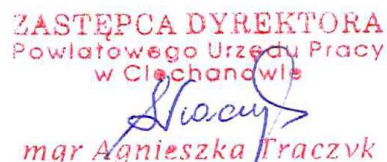 ZASTĘPCA DYREKTORA
Powiatowego Urzędu Pracy
w Ciechanowie
mgr Agnieszka Traczyk